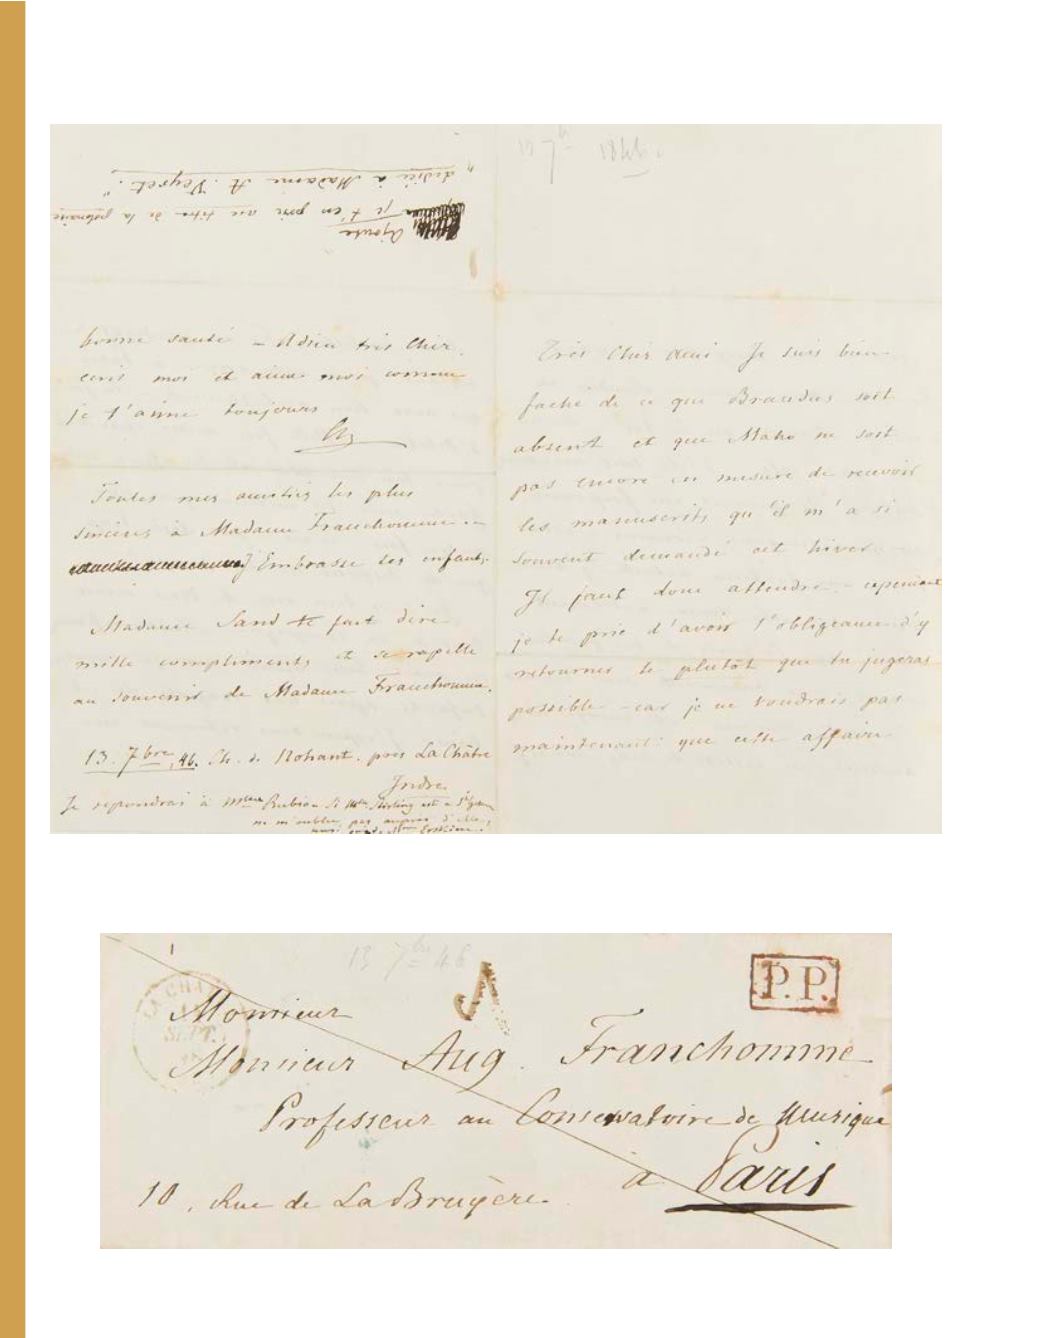 13 7bre 1846.
Très Cher ami Je suis bien
faché de ce que Brandus soit
absent et que Maho ne soit
pas encore en mesure de recevoir
les manuscrits qu'il m'a si
souvent demandé cet hiver
Il faut donc attendre – cependant
je te prie d'avoir l'obligeance d'y
retourner le plutôt que tu jugeras
possible – car je ne voudrais pas
maintenant que cette affaire
bonne santé – Adieu très Cher.
ecris moi et aime moi comme
je t'aime toujours
Ch
Toutes mes amitiés les plus
sincères à Madame Franchomme. –
Embrasse tes enfants.
Madame Sand te fait dire
mille compliments et se rapelle
au souvenir de Madame Franchomme.
13. 7bre, 46. Ch. de Nohant. près La Châtre
Indre.
Je repondrai à Mme Rubio. Si Mlle Stirling est à St
ne m'oublie pas auprès d'elle,
Mme Erskine.
Ajoute
je t'en prie au titre de la polonaise
„ dédiée à Madame A. Veyret."
13 7bre 46
LA CHA
SEPT.
P.P.
Monsieur
Monsieur Aug. Franchomme
Professeur au Conservatoire de Musique
à Paris
10, Rue de La Bruyère.